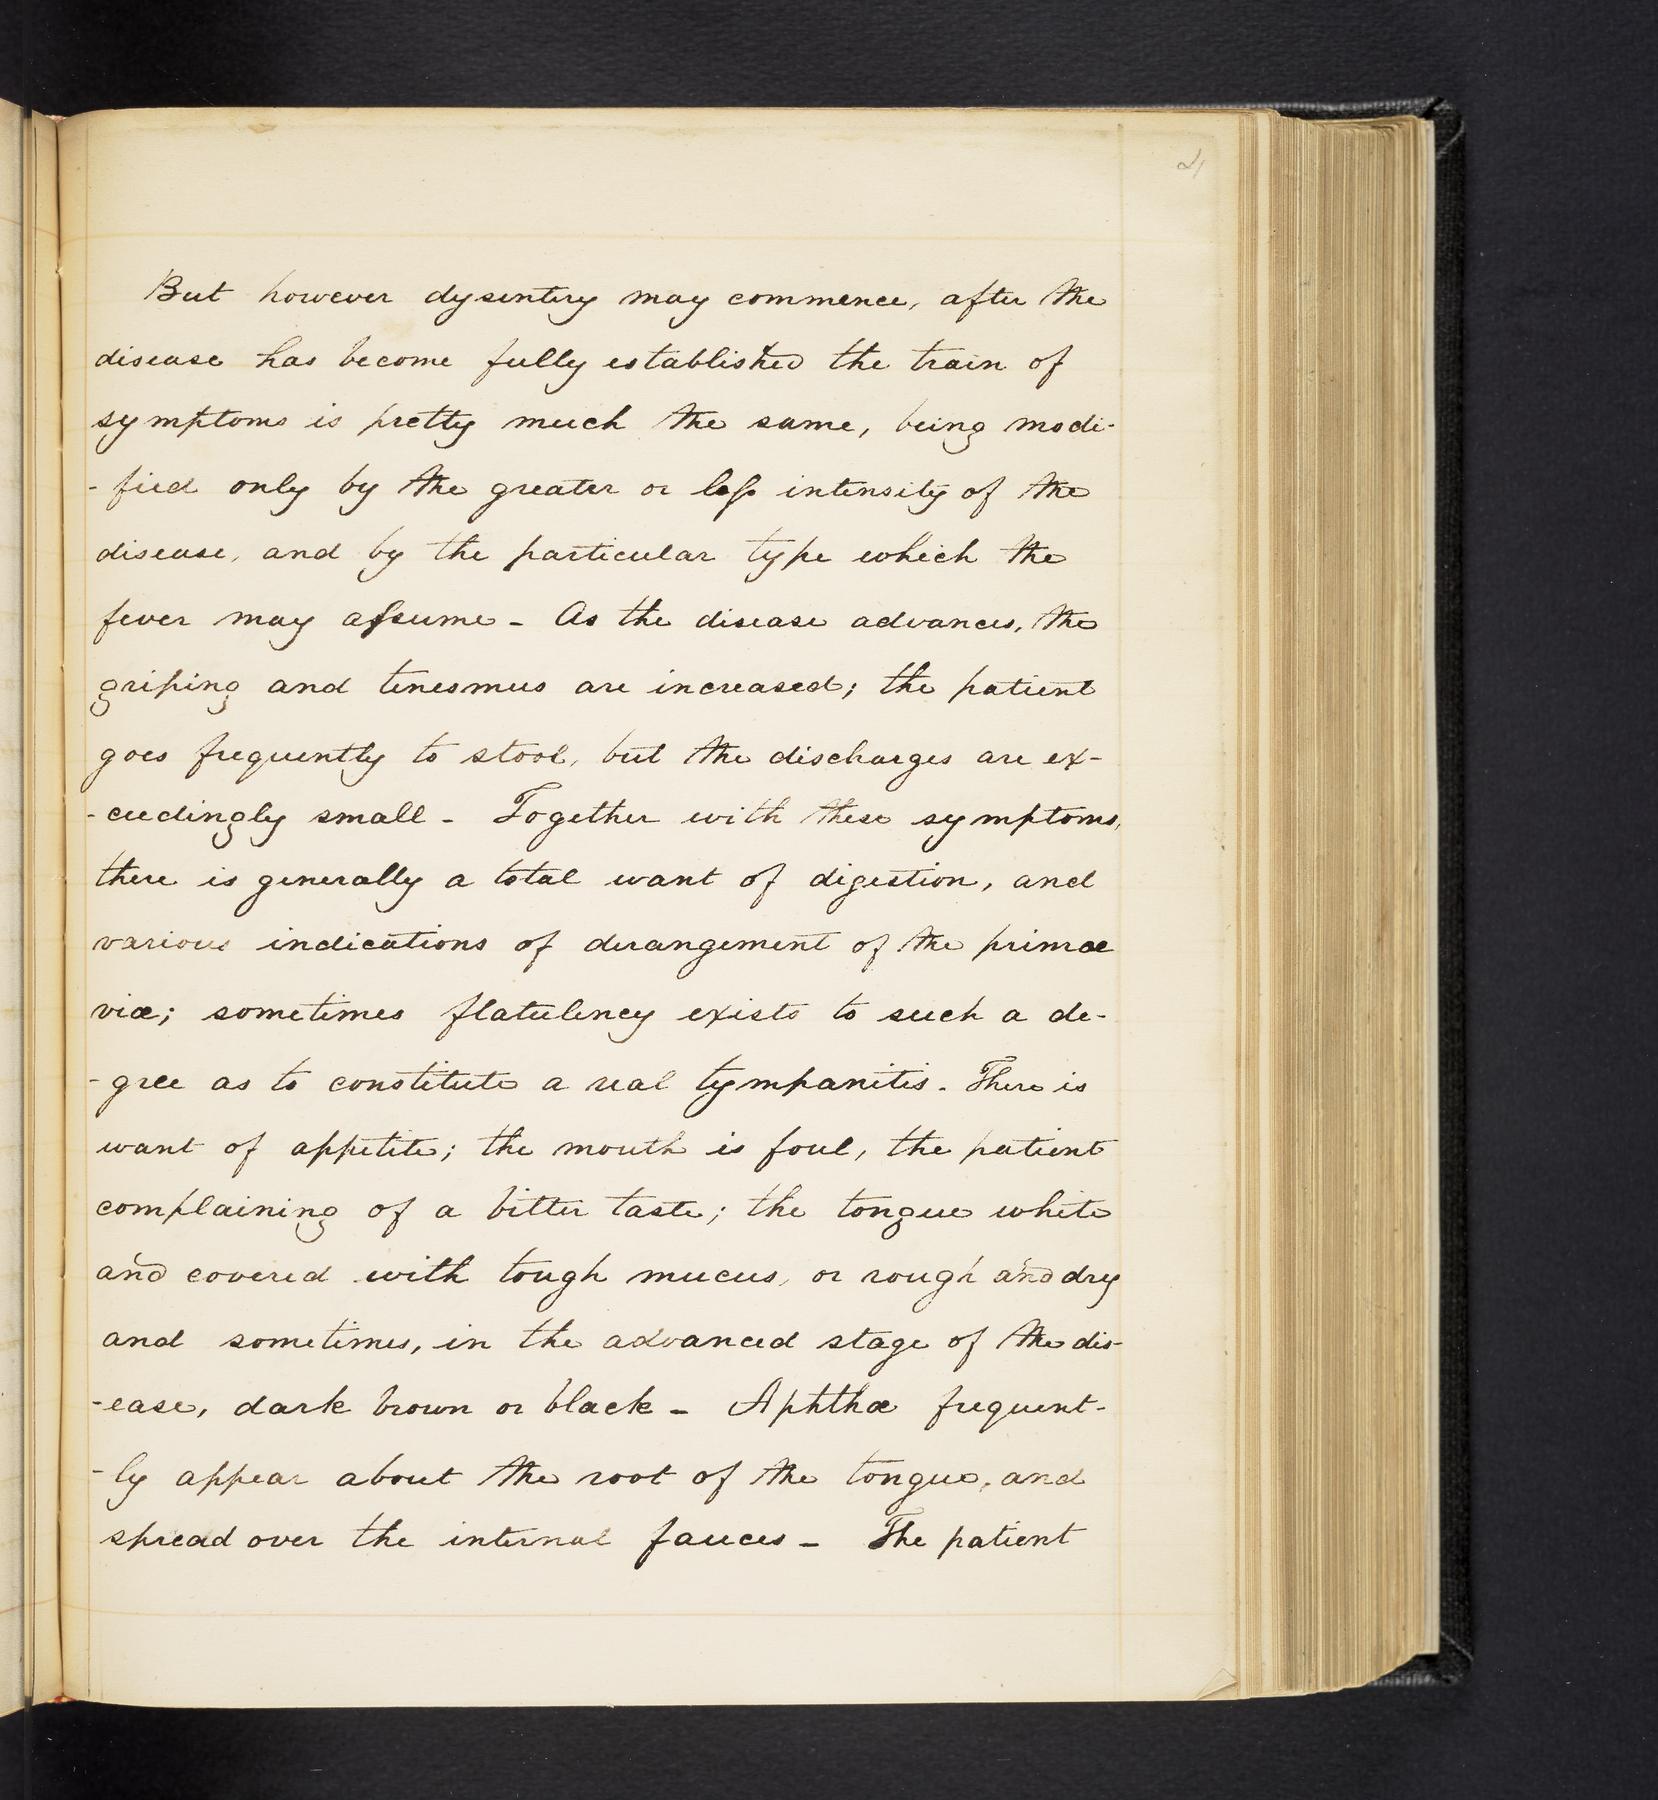 But however dysentery may commence, after the
disease has become fully established the train of
symptoms is pretty much the same, being modi-
-fied only by the greater or less intensity of the
disease, and by the particular type which the
fever may assume - As the disease advances, the
griping and tenesmus are increased; the patient
goes frequently to stool, but the discharges are ex-
-ceedingly small - Together with these symptoms,
there is generally a total want of digestion, and
various indications of derangement of the primae
viæ; sometimes flatulency exists to such a de-
-gree as to constitute a real tympanitis. There is
want of appetite; the mouth is foul, the patient
complaining of a bitter taste; the tongue white
and covered with tough mucus, or rough and dry
and sometimes, in the advanced stage of the dis-
-ease, dark brown or black - Aphthæ frequent-
-ly appear about the root of the tongue, and
spread over the internal fauces - The patient